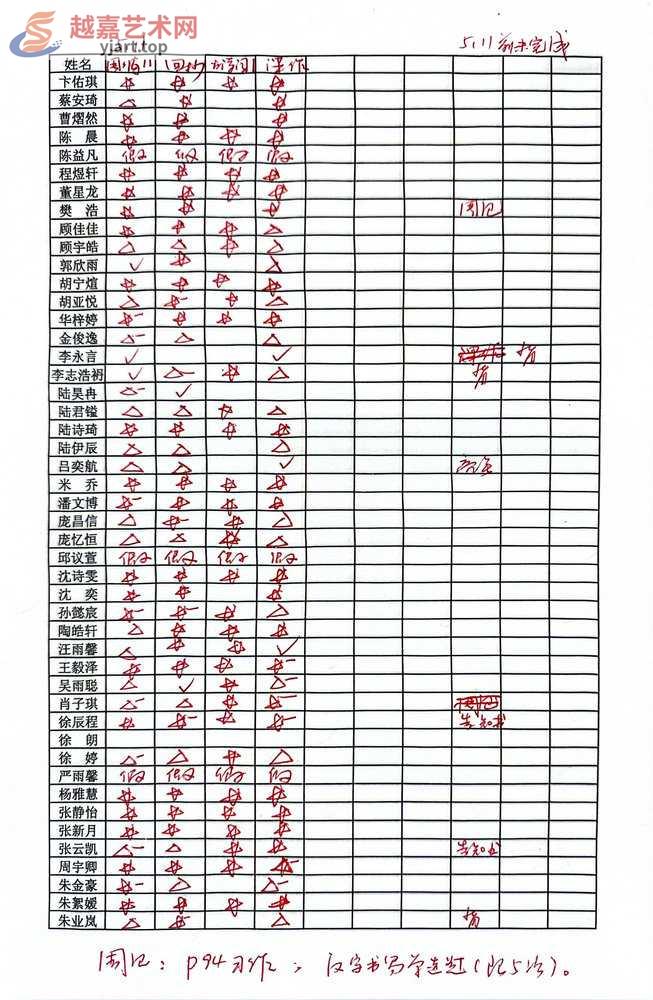 越嘉艺术网
yjart.net
5.11 前未完成
姓名 周练11 回纳 课作
卞佑琪 ☆ ☆ ☆ ☆
蔡安琦 △ ☆ ☆
曹熠然 ☆ ☆ ☆
陈晨 ☆ ☆ ☆ ☆
陈益凡 假 假 假 假
程煜轩 ☆ ☆ ☆ ☆
董星龙 ☆ ☆ ☆ ☆
樊浩 ☆ ☆ ☆ 周记
顾佳佳 ☆ ☆ ☆ △
顾宇皓 △ △ ☆ △
郭欣雨 ✓ ☆ △
胡宁煊 ☆ ☆ ☆ ☆
胡亚悦 △ ☆- ☆ △
华梓婷 ☆- ☆ ☆ ☆
金俊逸 △- △ △
李永言 ✓ ✓
李志浩祤 ✓ △- ☆ △
陆昊冉 △- ✓
陆君镒 △ △ ☆ △
陆诗琦 ☆ ☆ ☆ ☆
陆伊辰 △ △ △
吕奕航 △ △ ✓
米乔 ☆ ☆ ☆ ☆
潘文博 ☆- ☆ ☆ ☆
庞昌信 △ ☆- ☆ △
庞忆恒 △ △ ☆ △
邱议萱 假 假 假 假
沈诗雯 ☆ ☆ ☆ ☆
沈奕 ☆ ☆ ☆
孙懿宸 ☆- ☆- ☆ △
陶皓轩 △ ☆ ☆ ☆
汪雨馨 △ ☆ ☆ ✓
王毅泽 ☆ ☆ ☆ ☆-
吴雨聪 △ ✓ ☆ △-
肖子琪 △- △ ☆ ☆-
徐辰程 ☆ ☆- ☆- ☆- 告知书
徐朗
徐婷 △- △ ☆ △
严雨馨 假 假 假 假
杨雅慧 ☆ ☆ ☆ ☆
张静怡 ☆ ☆ ☆ ☆
张新月 ☆ ☆ ☆ ☆
张云凯 △- △ ☆ ☆ 告知书
周宇卿 ☆ ☆ ☆ ☆-
朱金豪 ☆- △ △-
朱絮媛 ☆ ☆ ☆ ☆
朱业岚 △ ☆- △
周记：P94习作；汉字书写单选题（记5次）。